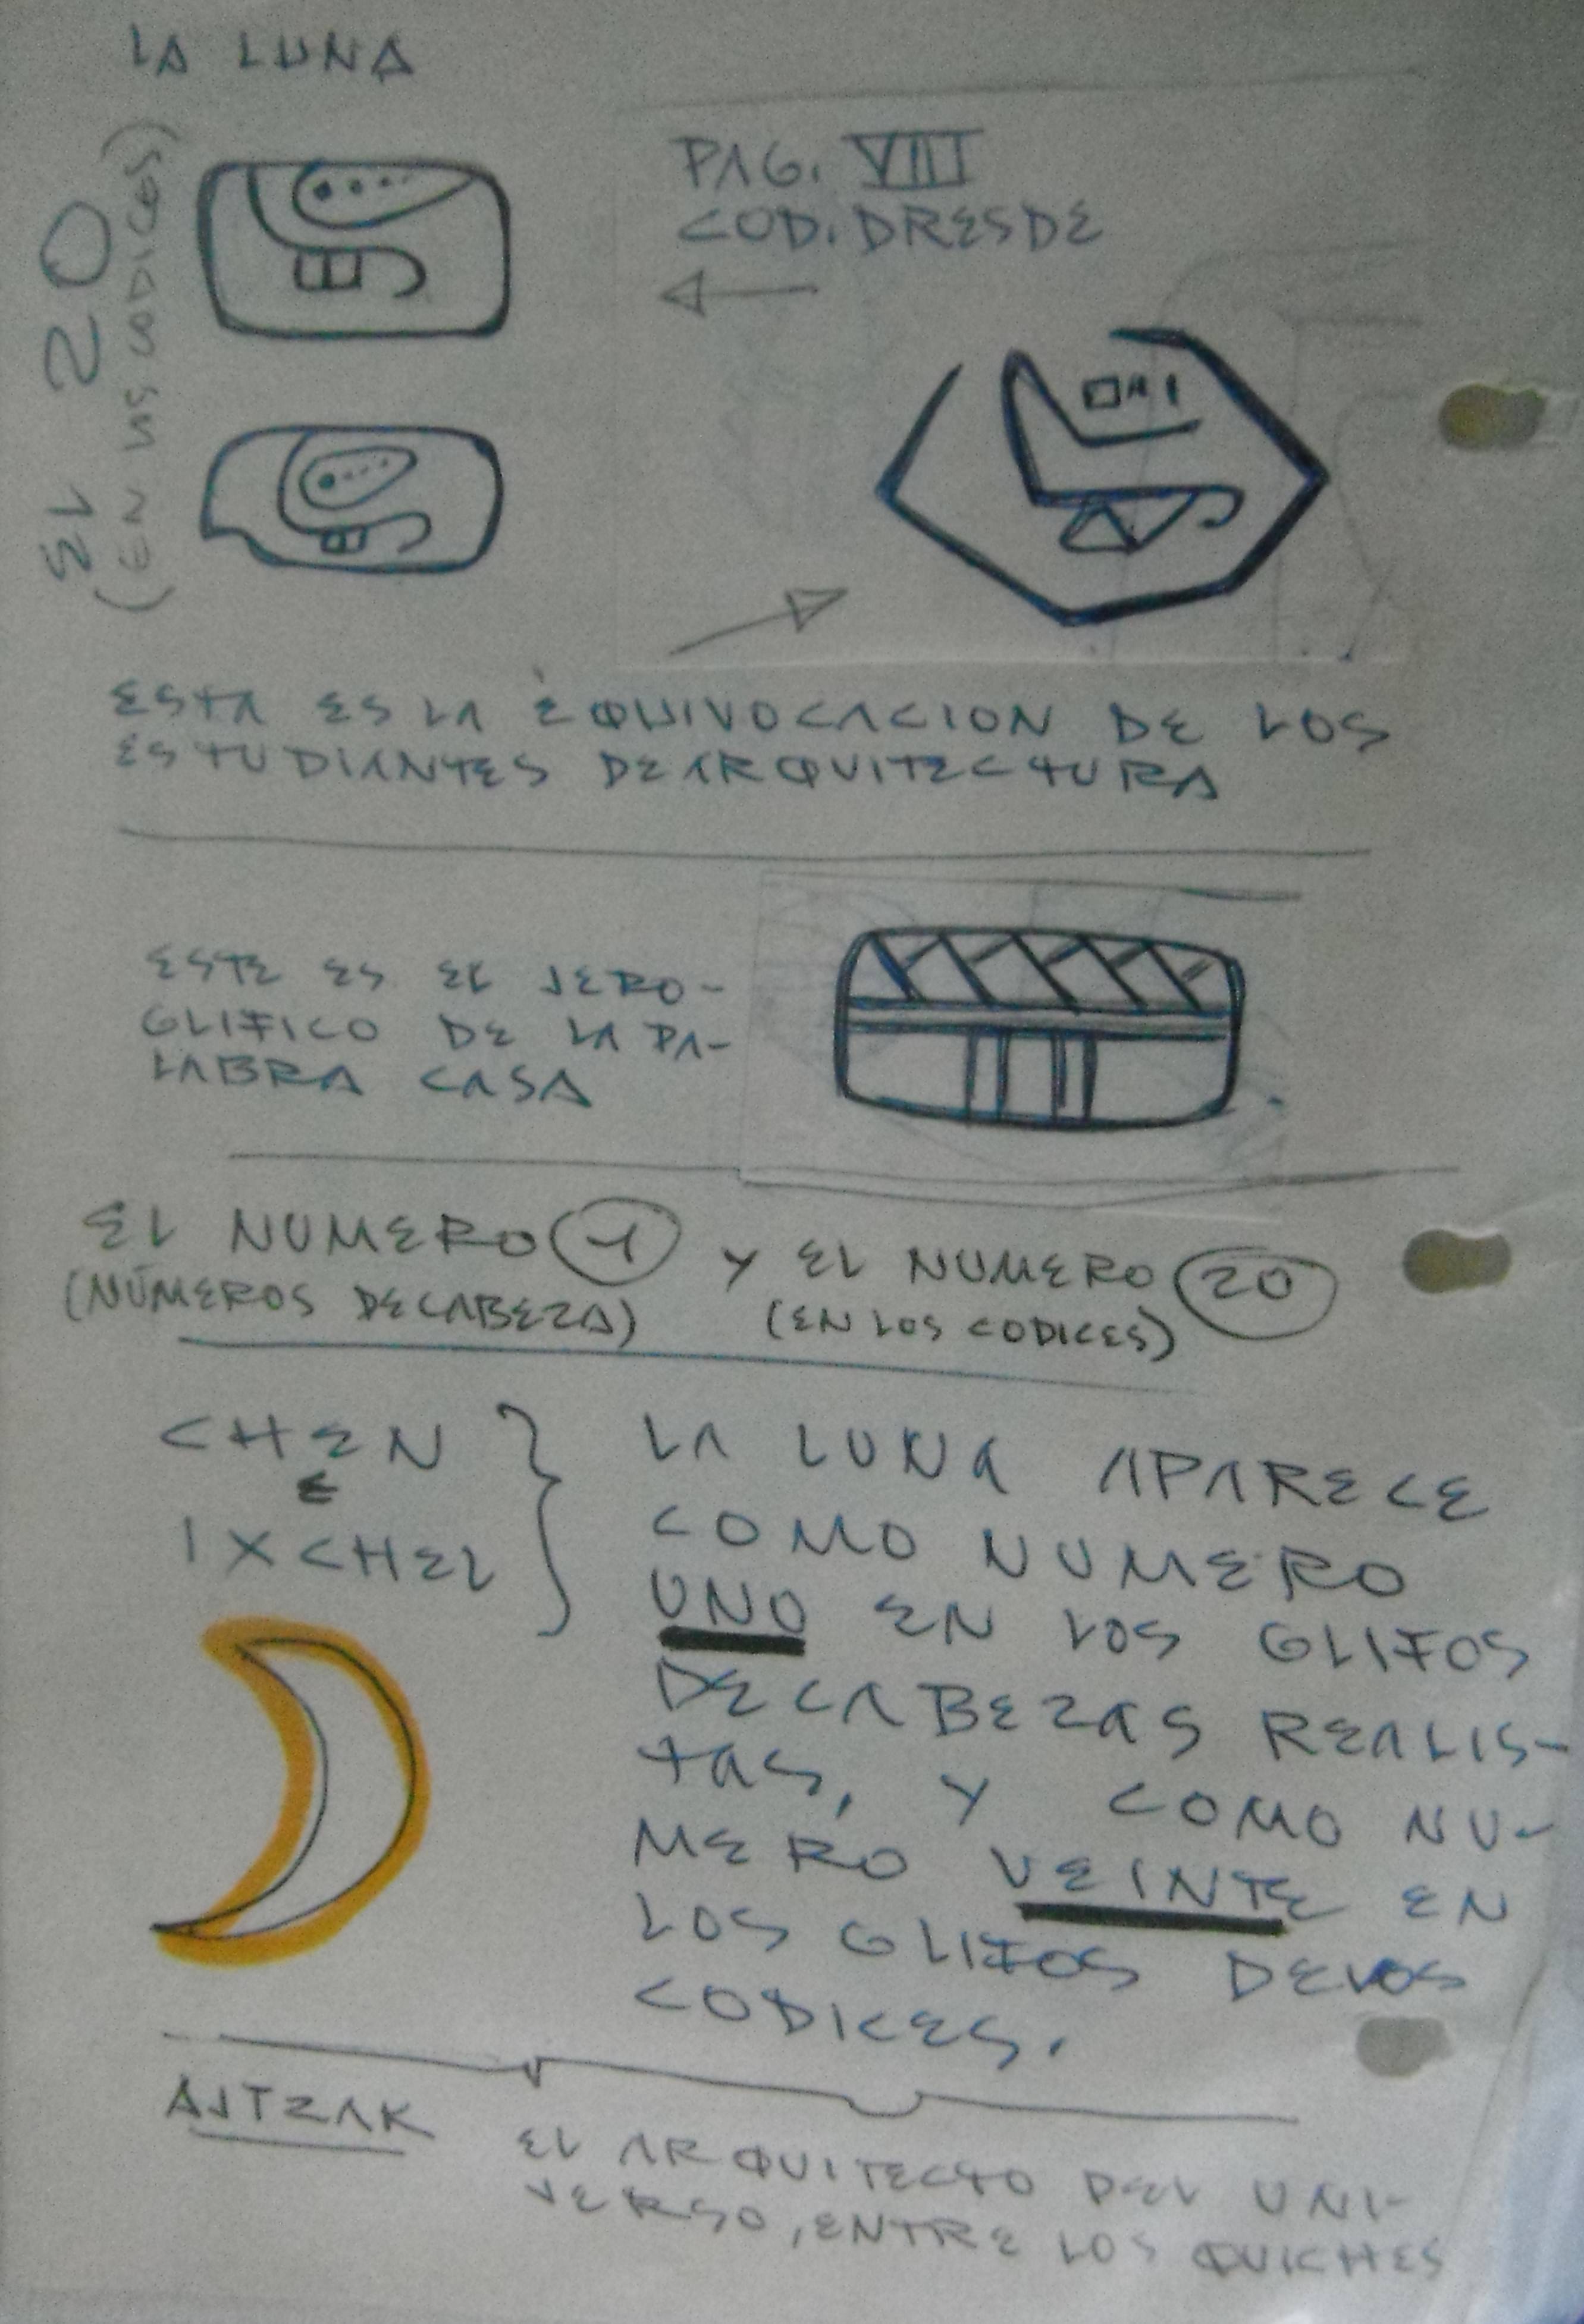 LA LUNA
EL 20
(EN LOS CODICES)
PAG. VIII
COD. DRESDE
ESTA ES LA EQUIVOCACION DE LOS
ESTUDIANTES DE ARQUITECTURA
ESTE ES EL JERO-
GLIFICO DE LA PA-
LABRA CASA
EL NUMERO 1 Y EL NUMERO 20
(NÚMEROS DE CABEZA) (EN LOS CODICES)
CHEN
E
IXCHEL
LA LUNA APARECE
COMO NUMERO
UNO EN LOS GLIFOS
DE CABEZAS REALIS-
TAS, Y COMO NU-
MERO VEINTE EN
LOS GLIFOS DE LOS
CODICES.
AJTZAK
EL ARQUITECTO DEL UNI-
VERSO, ENTRE LOS QUICHES